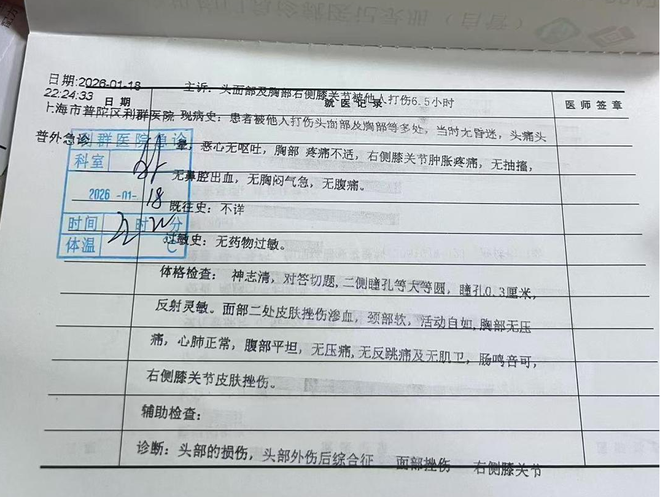 日期:2026-01-18
22:24:33
日期
就医记录
医师签章
主诉: 头面部及胸部右侧膝关节被他人打伤6.5小时
上海市普陀区利群医院 现病史: 患者被他人打伤头面部及胸部等多处, 当时无昏迷, 头痛头
普外急诊
晕, 恶心无呕吐, 胸部 疼痛不适, 右侧膝关节肿胀疼痛, 无抽搐,
无鼻腔出血, 无胸闷气急, 无腹痛。
利群医院急诊
科室
2026 -01- 18
时间 22 时 分
体温 ℃
既往史: 不详
过敏史: 无药物过敏。
体格检查: 神志清, 对答切题, 二侧瞳孔等大等圆, 瞳孔0.3厘米,
反射灵敏。面部二处皮肤挫伤渗血, 颈部软, 活动自如, 胸部无压
痛, 心肺正常, 腹部平坦, 无压痛, 无反跳痛及无肌卫, 肠鸣音可,
右侧膝关节皮肤挫伤。
辅助检查:
诊断: 头部的损伤, 头部外伤后综合征 面部挫伤 右侧膝关节